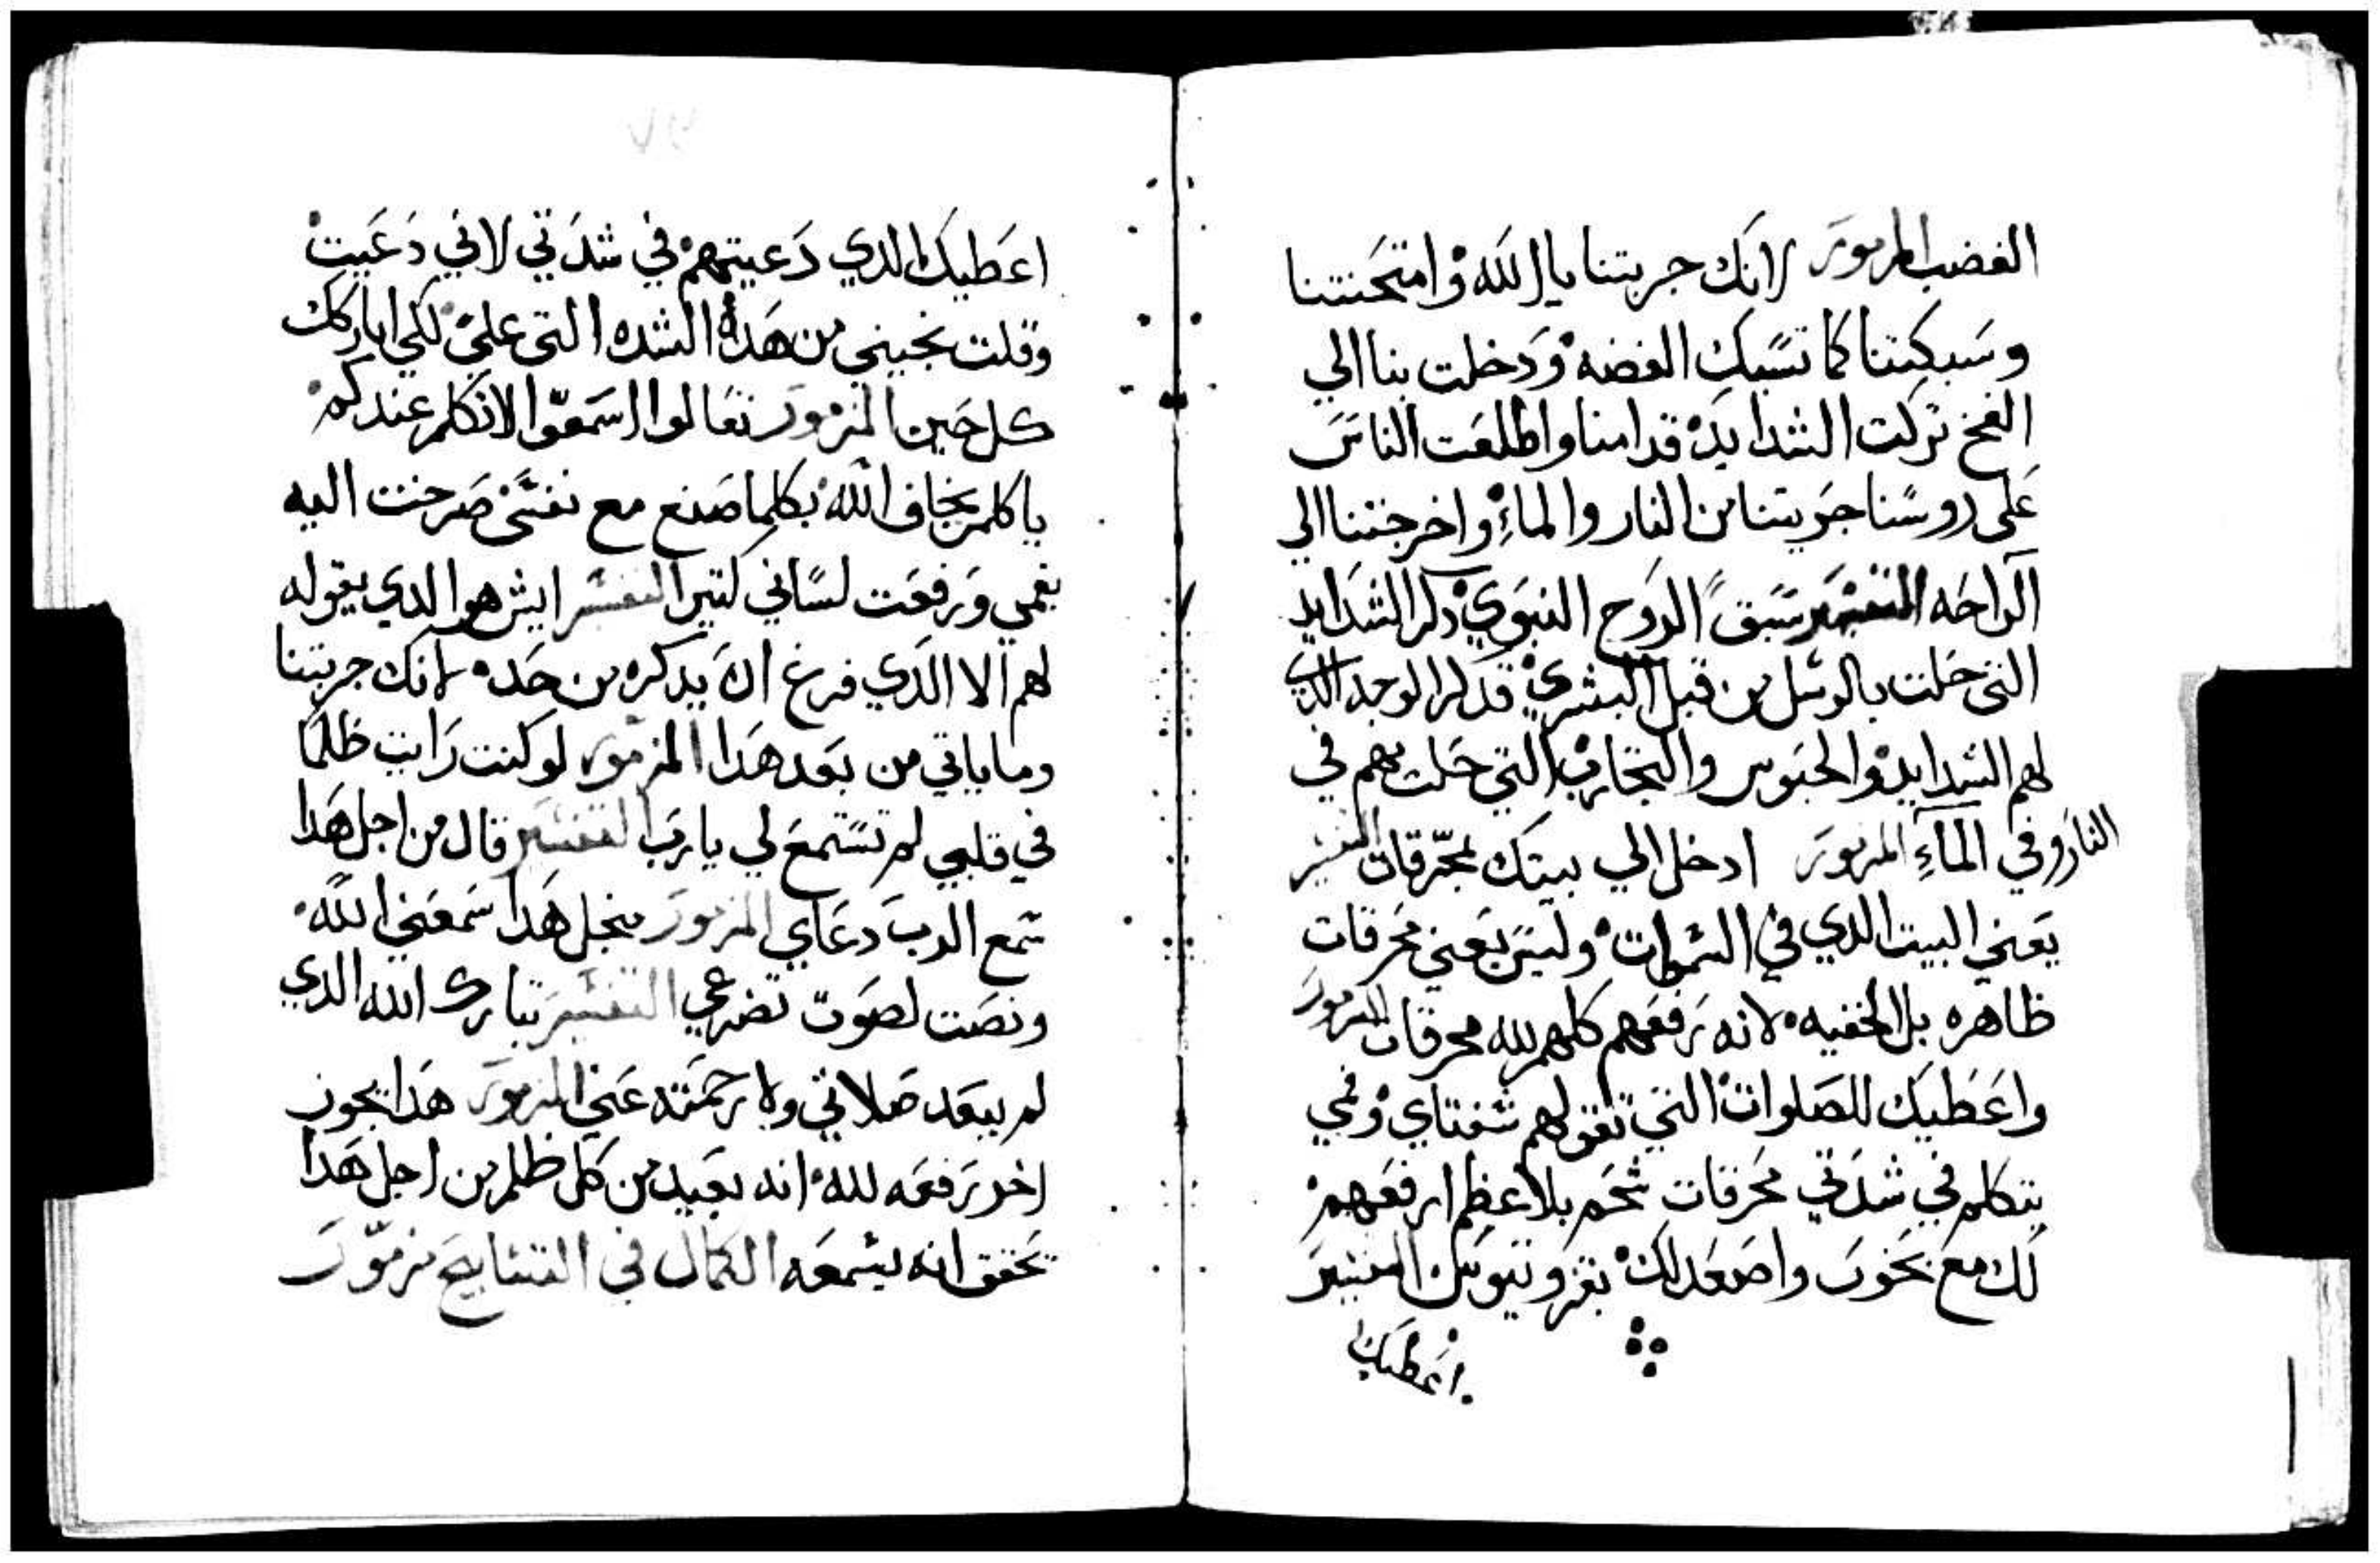 الغضب المزمور لانك جربتنا يا الله وامتحنتنا
وسبكتنا كما تسبك الفضه ودخلت بنا الي
الفخ تركت الشدايد قدامنا واطلعت الناس
علي روسنا جوزتنا من النار والماء واخرجتنا الي
الراحه التفسير سبق الروح النبوي ذكر الشدايد
التي حلت بالرسل من قبل البشري قدكر الوجد الذي
لهم الشدايد والحبوس والتجارب التي حلت بهم في
النار وفي الماء المزمور ادخل الي بيتك بمحرقات التفسير
يعني البيت الدي في السموات وليس يعني محرقات
ظاهره بل الخفيه لانه رفعهم كلهم لله محرقات المزمور
واعطيك للصلوات التي تقولهم شفتاي وفمي
يتكلم في شدتي محرقات شحم بلا عظم ارفعهم
لك مع بخور واصعد لك بقر وتيوس التفسير
اعطيك
اعطيك الدي دعيتهم في شدتي لاني دعيت
وقلت نجيني من هده الشده التي علي لكي اباركك
كل حين المزمور تعالوا اسمعوا لاتكلم عندكم
يا كلمن يخاف الله بكلما صنع مع نفسي صرخت اليه
بفمي ورفعت لساني كتيرا التفسير ايش هو الدي يقوله
لهم الا الذي فرغ ان يدكره من حده لانك جربتنا
وما ياتي من بعد هدا المزمور لو كنت رايت ظلما
في قلبي لم تستمع لي يا رب التفسير قال من اجل هدا
سمع الرب دعاي المزمور منجل هدا سمعني الله
ونصت لصوت تضرعي التفسير تبارك الله الدي
لم يبعد صلاتي ولا رحمته عني المزمور هدا بخور
اخر رفعه لله انه بعيد من كل ظلم من اجل هدا
تحقق انه يسمعه الكمال في التسابيح مزمور